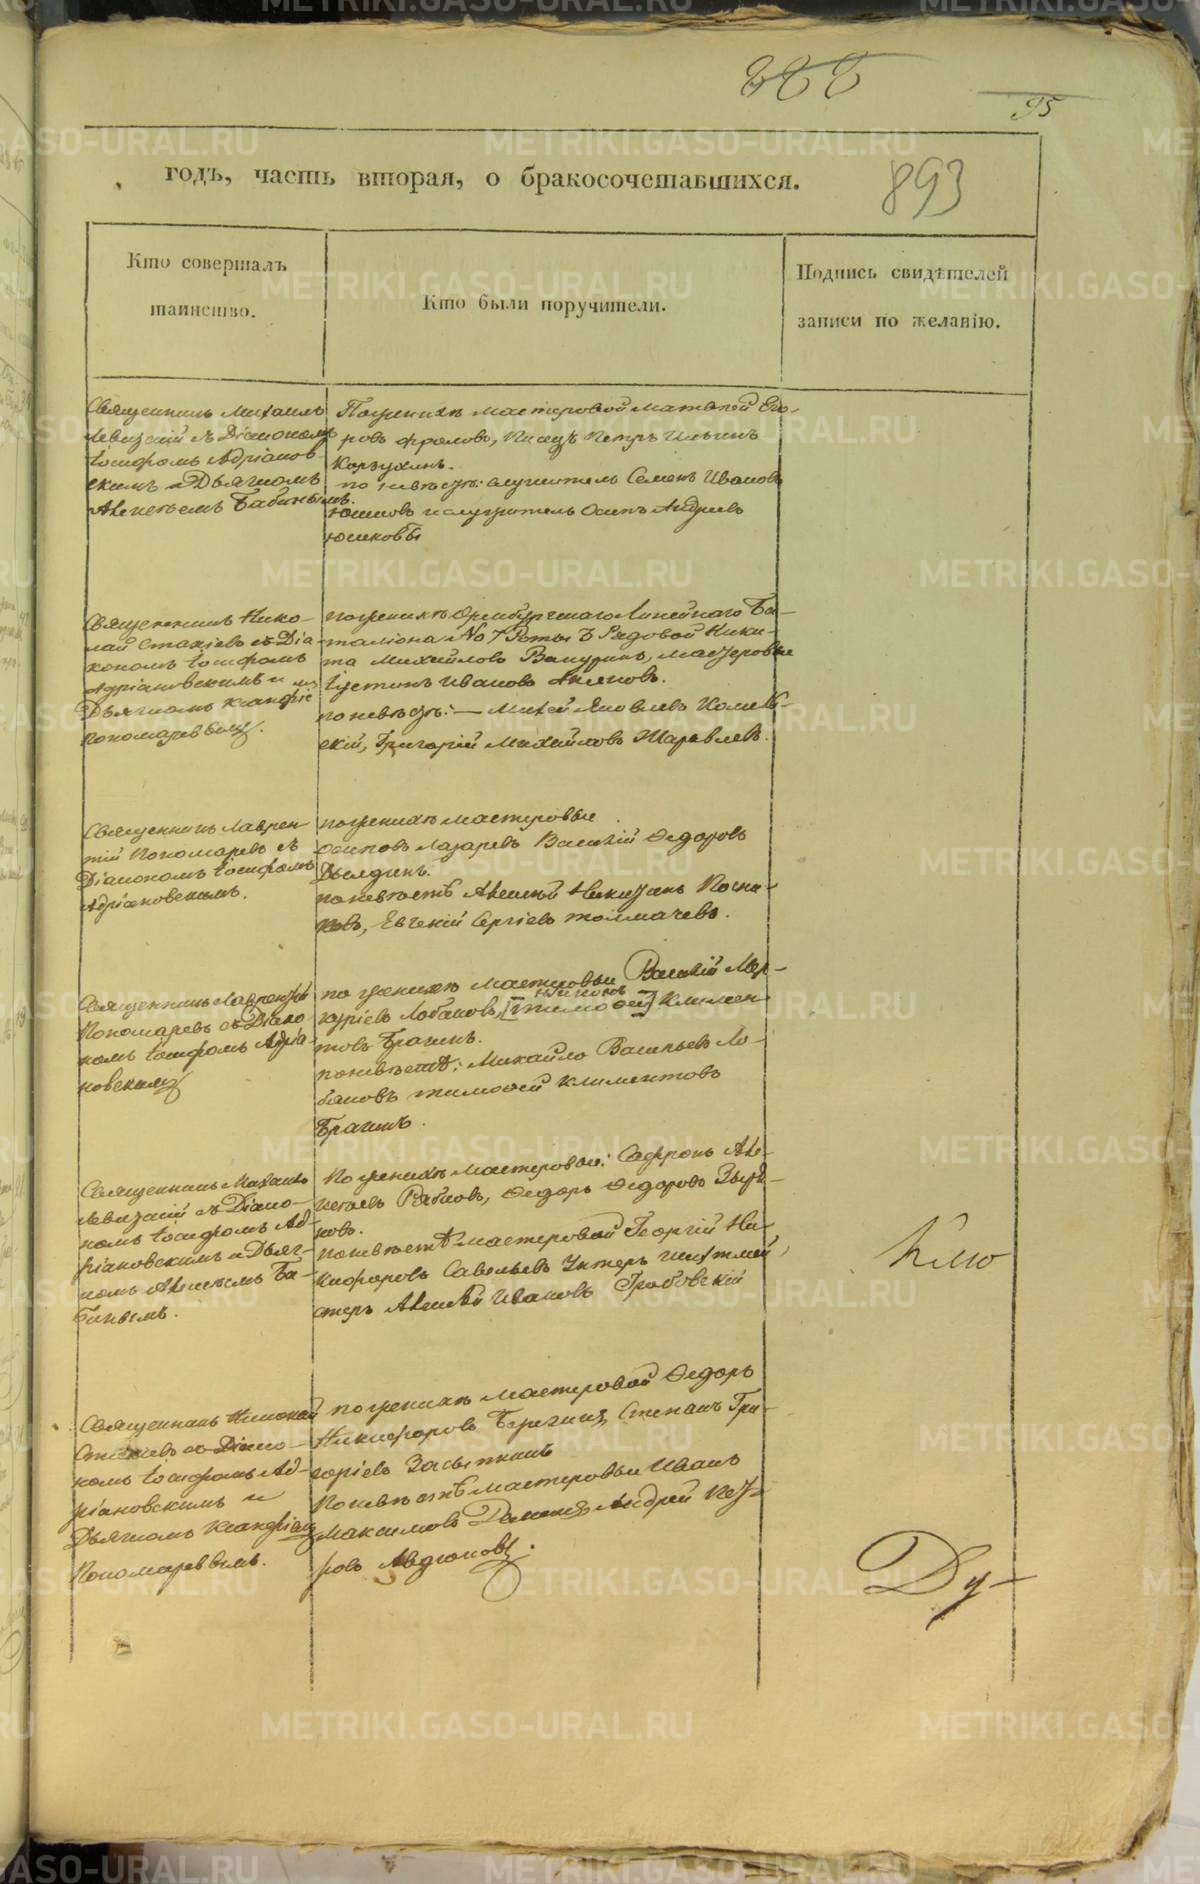 95
годъ, часть вторая, о бракосочетавшихся.
893
Кто совершалъ
таинство.
Кто были поручители.
Подпись свидѣтелей
записи по желанію.
Священникъ Михаилъ
Левицкій съ Діакономъ
Іосифомъ Адріанов-
скимъ и Дьячкомъ
Алексѣемъ Бабинымъ.
По женихѣ мастеровой Матвей Его-
ровъ Фроловъ, Писецъ Петръ Ильинъ
Корзухинъ.
по невѣстѣ: служитель Семенъ Ивановъ
и служитель Осипъ Андреевъ
Священникъ Нико-
лай Стахіевъ съ Діа-
кономъ Іосифомъ
Адріановскимъ и
Дьячкомъ
Пономаревымъ.
по женихѣ Оренбургскаго Линейнаго Ба-
таліона № 7 Роты Рядовой Ники-
та Михайловъ мастеровые
Густинъ Ивановъ
по невѣстѣ: — Яковлевъ
скій, Григорій Михайловъ Жаравлевъ.
Священникъ Лаврен-
тій Пономаревъ съ
Діакономъ Іосифомъ
Адріановскимъ.
по женихѣ мастеровые
Осиповъ Лазаревъ Василій Ѳедоровъ
по невѣстѣ Алексѣй
Евгеній Сергіевъ Толмачевъ.
Священникъ Лаврентій
Пономаревъ съ Діако-
номъ Іосифомъ Адріа-
новскимъ
по женихѣ мастеровыи Василій Мер-
куріевъ Лобановъ, [Тимоѳей] Климен-
товъ Брагинъ.
по невѣстѣ: Михайло Васильевъ Ло-
бановъ Тимоѳей Климентовъ
Брагинъ.
Священникъ Михаилъ
Левицкій съ Діако-
номъ Іосифомъ Ад-
ріановскимъ и Дьяч-
комъ Алексѣемъ Ба-
бинымъ.
По женихѣ мастеровые: Софронъ Але-
ксѣевъ Рябковъ, Ѳедоръ Ѳедоровъ Зыря-
новъ.
по невѣстѣ мастеровой Георгій Ни-
кифоровъ Савельевъ Унтеръ Шихтмей-
стеръ Алексѣй Ивановъ Грабовскій
Священникъ Николай
Стахіевъ съ Діако-
номъ Іосифомъ Ад-
ріановскимъ и
Дьячкомъ
Пономаревымъ.
по женихѣ мастеровой Ѳедоръ
Никифоровъ Степанъ Гри-
горіевъ Засыпкинъ
По невѣстѣ мастеровыи Иванъ
Максимовъ Андрей Пет-
ровъ Авдюковъ.
Ду-
METRIKI.GASO-URAL.RU